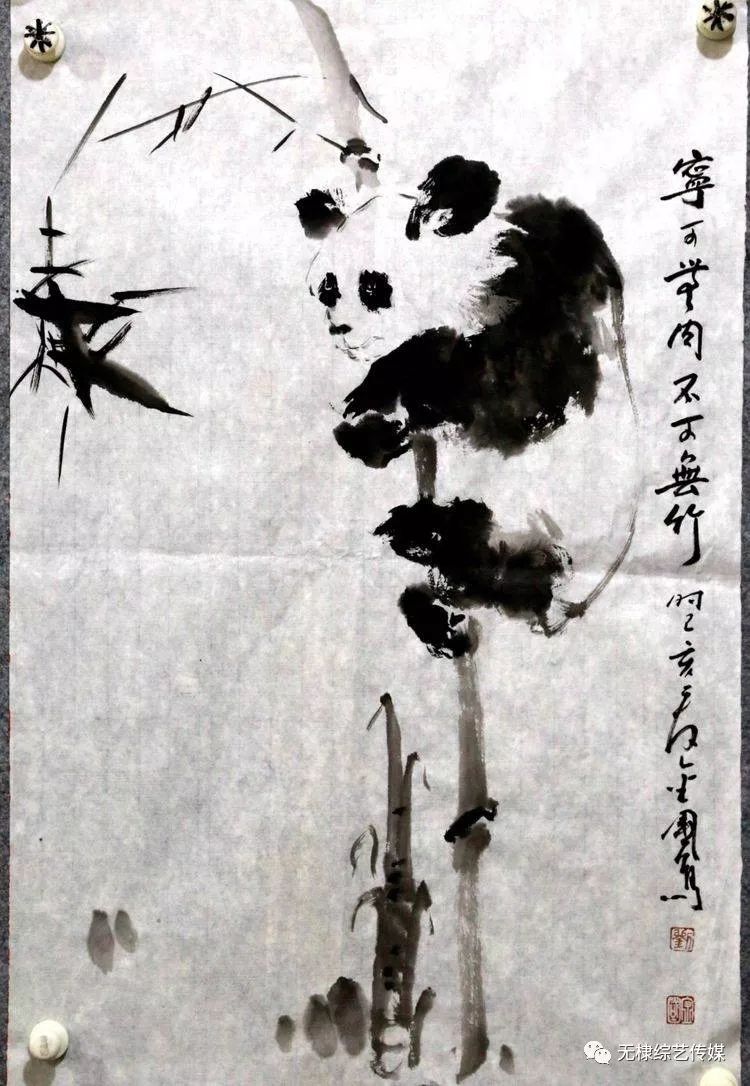 寧可無肉不可無竹
时己亥
劉
无棣综艺传媒